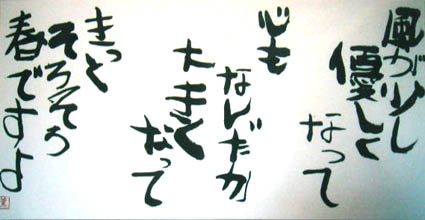 風が少し
優しく
なって
心も
なんだか
大きく
なって
きっと
そろそろ
春ですよ